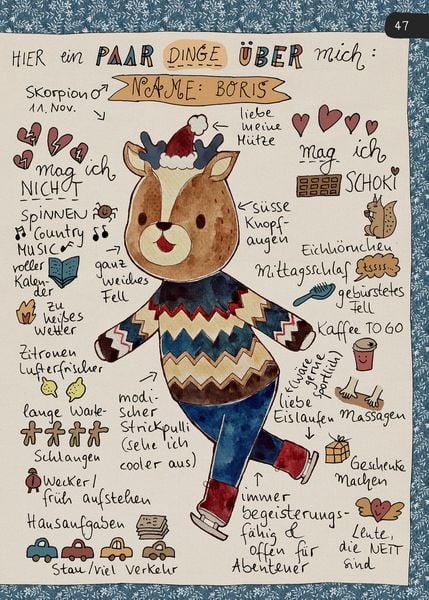 47
HIER ein PAAR DINGE ÜBER mich:
NAME: BORIS
Skorpion ♂
11. Nov.
liebe
meine
Mütze
süsse
Knopf-
augen
ganz
weiches
Fell
modi-
scher
Strickpulli
(sehe ich
cooler aus)
(wäre
gerne
sportlich)
liebe
Eislaufen
immer
begeisterungs-
fähig &
offen für
Abenteuer
mag ich
NICHT
SPiNNEN
Country
MUSIC
voller
Kalen-
der
zu
heißes
Wetter
Zitronen
Lufterfrischer
lange Warte-
Schlangen
Wecker/
früh aufstehen
Hausaufgaben
Stau/viel Verkehr
mag ich
SCHOKi
Eichhörnchen
Mittagsschlaf
gebürstetes
Fell
Kaffee TO GO
Massagen
Geschenke
Machen
Leute,
die NETT
sind